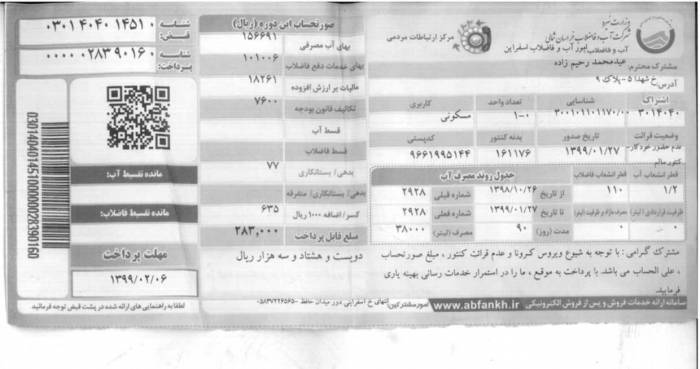 وزارت نیرو
شرکت آب و فاضلاب خراسان شمالی
آب و فاضلاب امور آب و فاضلاب اسفراین
مرکز ارتباطات مردمی
مشترک محترم: عیدمحمد رحیم زاده
آدرس: خ شهدا ۵-پلاک ۹
اشتراک شناسایی تعداد واحد کاربری
۳۰۱۴۰۴۰ ۱-۰ مسکونی
وضعیت قرائت تاریخ صدور بدنه کنتور کدپستی
عدم حضور خودکار- کنتور سالم ۱۳۹۹/۰۱/۲۷ ۱۶۱۱۷۶ ۹۶۶۱۹۹۵۱۴۴
قطر انشعاب آب قطر انشعاب فاضلاب جدول روند مصرف آب
۱/۲ ۱۱۰ از تاریخ ۱۳۹۸/۱۰/۲۶ شماره قبلی ۲۹۲۸
ظرفیت قراردادی (لیتر) مصرف مازاد بر ظرفیت (لیتر) تا تاریخ ۱۳۹۹/۰۱/۲۷ شماره فعلی ۲۹۲۸
۰ ۰ مدت (روز) ۹۰ مصرف (لیتر) ۳۸۰۰۰
مشترک گرامی: با توجه به شیوع ویروس کرونا و عدم قرائت کنتور ، مبلغ صورتحساب
، علی الحساب می باشد. با پرداخت به موقع ، ما را در استمرار خدمات رسانی بهینه یاری
فرمایید.
سامانه ارائه خدمات فروش و پس از فروش الکترونیکی www.abfankh.ir
امور مشترکین: انتهای خ اسفراینی دور میدان حافظ -۰۵۸۳۷۲۲۶۵۶۵
صورتحساب این دوره (ریال)
بهای آب مصرفی ۱۵۶۶۹۱
بهای خدمات دفع فاضلاب ۱۰۱۰۰۶
مالیات بر ارزش افزوده ۱۸۲۶۱
تکالیف قانون بودجه ۷۶۰۰
قسط آب
قسط فاضلاب
بدهی/ بستانکاری ۷۷
بدهی/ بستانکاری متفرقه
کسر/ اضافه ۱۰۰۰ ریال ۶۳۵
مبلغ قابل پرداخت ۲۸۳,۰۰۰
دویست و هشتاد و سه هزار ریال
شناسه قبض: ۰۳۰۱۴۰۴۰۱۴۵۱۰
شناسه پرداخت: ۰۰۰۰۰۲۸۳۹۰۱۶۰
03014040145100000028390160
مانده تقسیط آب:
مانده تقسیط فاضلاب:
مهلت پرداخت
۱۳۹۹/۰۲/۰۶
لطفا به راهنمایی های ارائه شده در پشت قبض توجه فرمائید